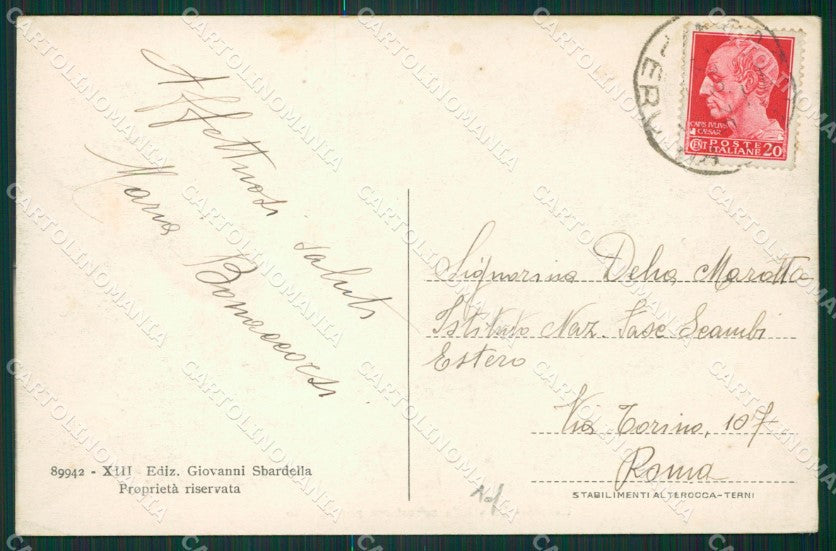 Affettuosi saluti
Maria Bonaccorsi
89942 - XIII Ediz. Giovanni Sbardella
Proprietà riservata
CAIVS IVLIVS
CAESAR
POSTE
ITALIANE 20
Signorina Delia Marotta
Istituto Naz. Fasc Scambi
Estero
Via Torino, 107
Roma
STABILIMENTI ALTEROCCA-TERNI
CARTOLINOMANIA